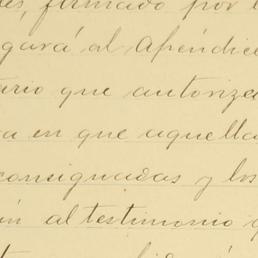 es, formado por
gará al Apéndice
ario que autoriza
a en que aquella
consignadas y los
ún al testimonio